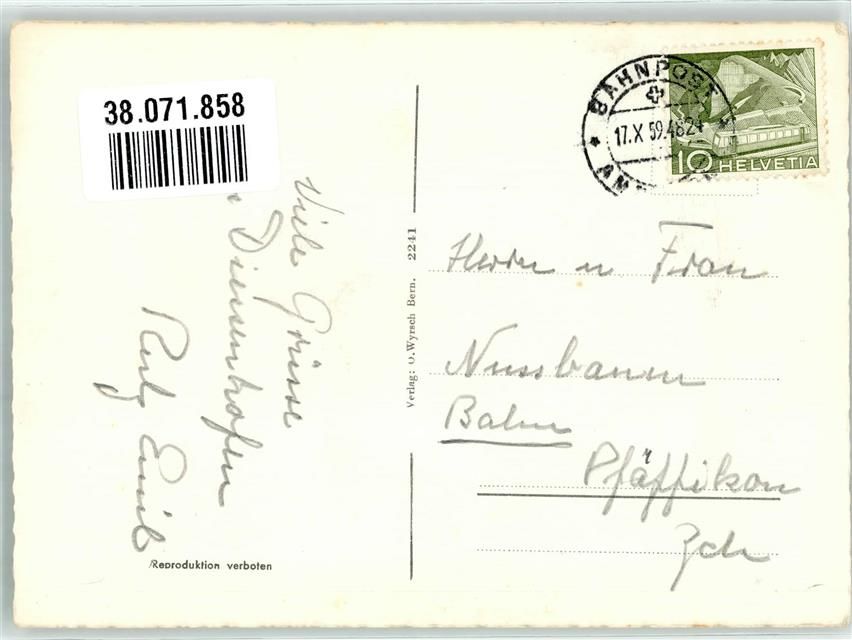 38.071.858
Viele Grüsse
Diessenhofen
Emil
Reproduktion verboten
Verlag: O. Wyrsch Bern. 2241
BAHNPOST
17.X 59.4824
AM
10 HELVETIA
Herrn u Frau
Nussbaum
Bahn
Pfäffikon
Zch